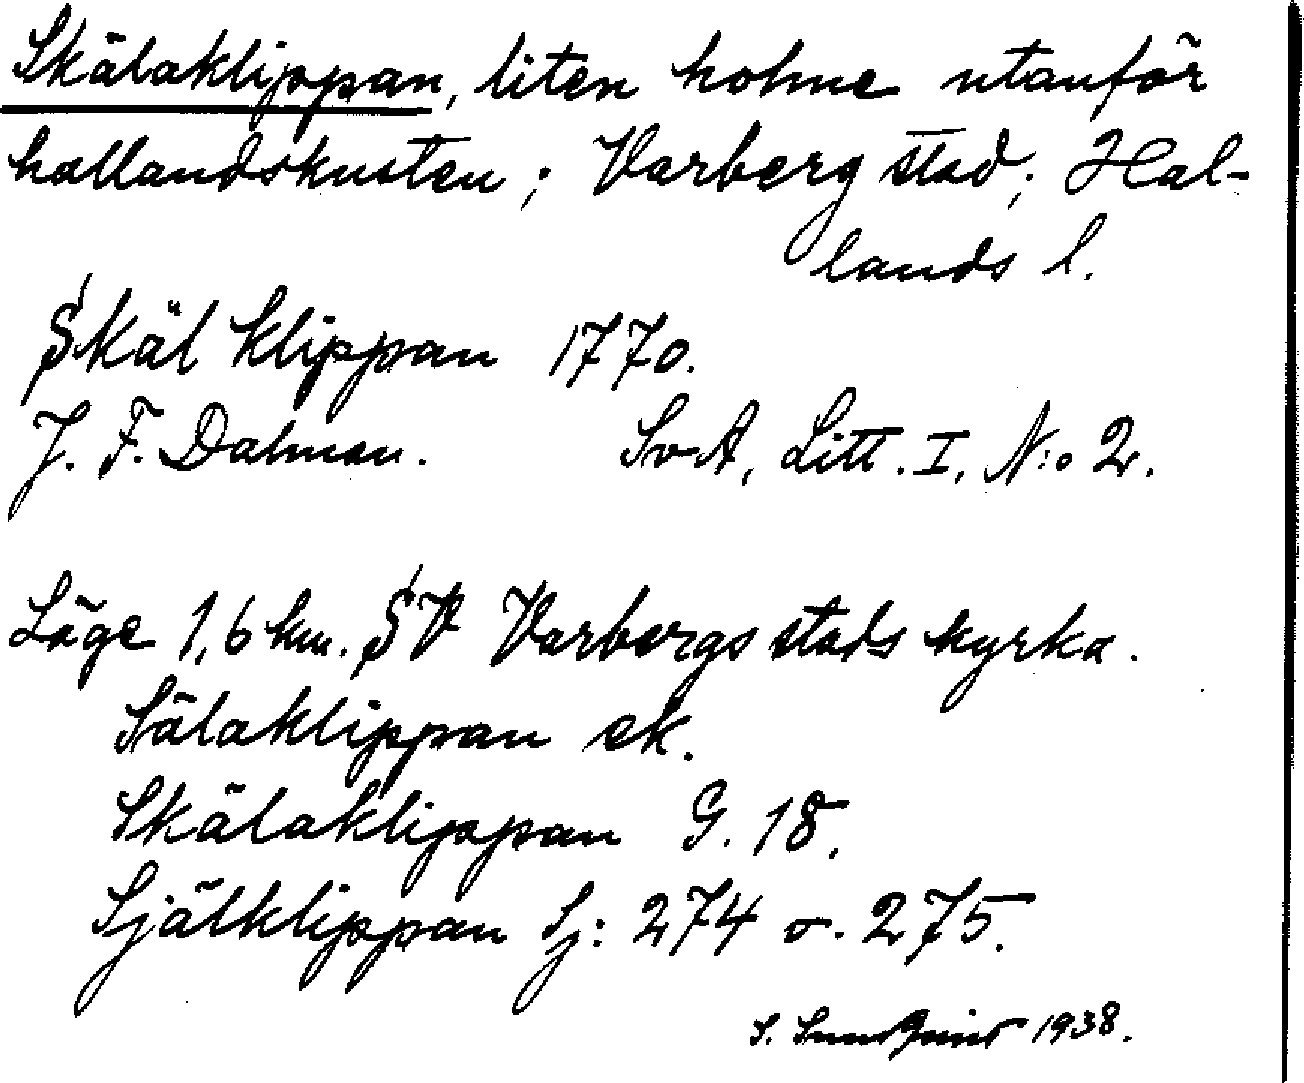 Skälaklippan, liten holme utanför
hallandskusten; Varberg stad; Hal-
lands l.
Skäl klippan 1770.
J. F. Dalman. SvA, Litt. I, N:o 2.
Läge 1,6 km. SV Varbergs stads kyrka.
Sälaklippan ek.
Skälaklippan G. 18.
Själklippan Sj: 274 o. 275.
S. Sundquist 1938.